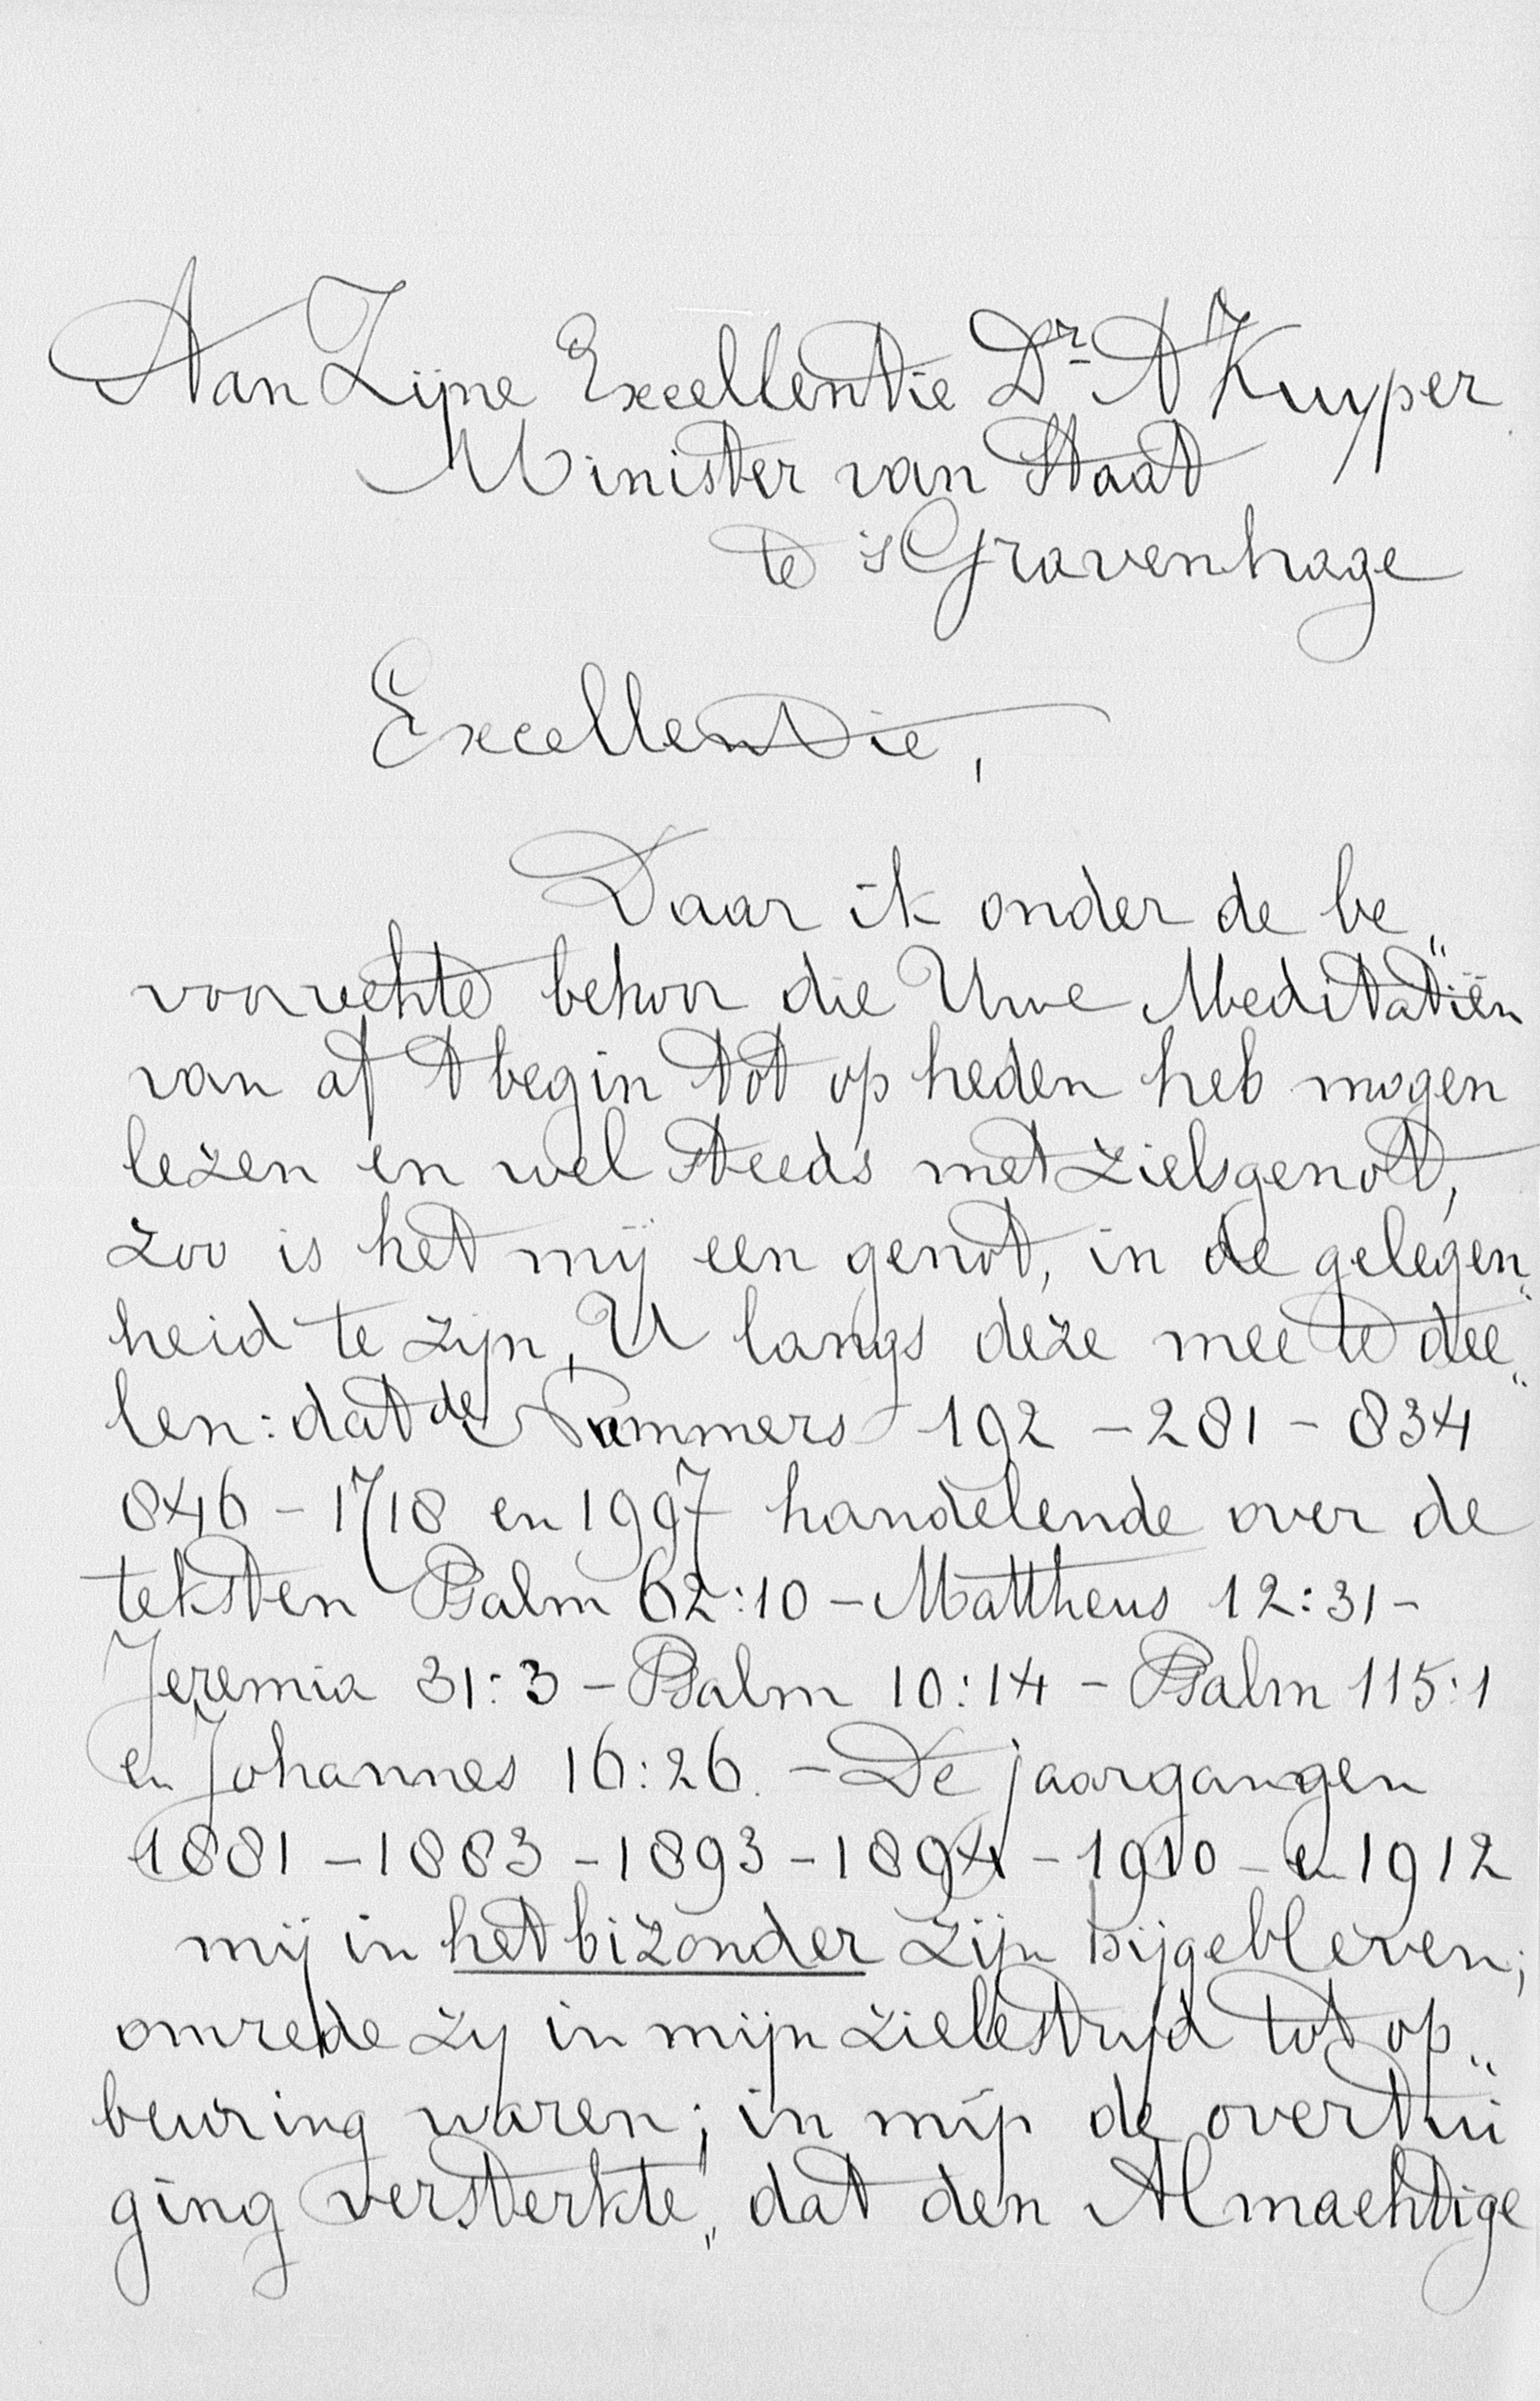 Aan Zijne Excellentie Dr. A Kuyper
Minister van Staat
te 's Gravenhage
Excellentie,
Daar ik onder de be„
voorrechte behoor die Uwe Meditatiën
van af 't begin tot op heden heb mogen
lezen en wel steeds met zielsgenot,
zoo is het mij een genot, in de gelegen„
heid te zijn, U langs deze mee te dee„
len: dat de Nummers 192 – 281 – 834
846 – 1718 en 1997 handelende over de
teksten Psalm 62:10 – Mattheus 12:31 –
Jeremia 31:3 – Psalm 10:14 – Psalm 115:1
en Johannes 16:26. – De jaargangen
1881 – 1883 – 1893 – 1894 – 1910 – en 1912
mij in het bizonder zijn bijgebleven;
omrede zij in mijn zielestrijd tot op„
beuring waren; in mijn de overtui
ging versterkte„ dat den Almachtige